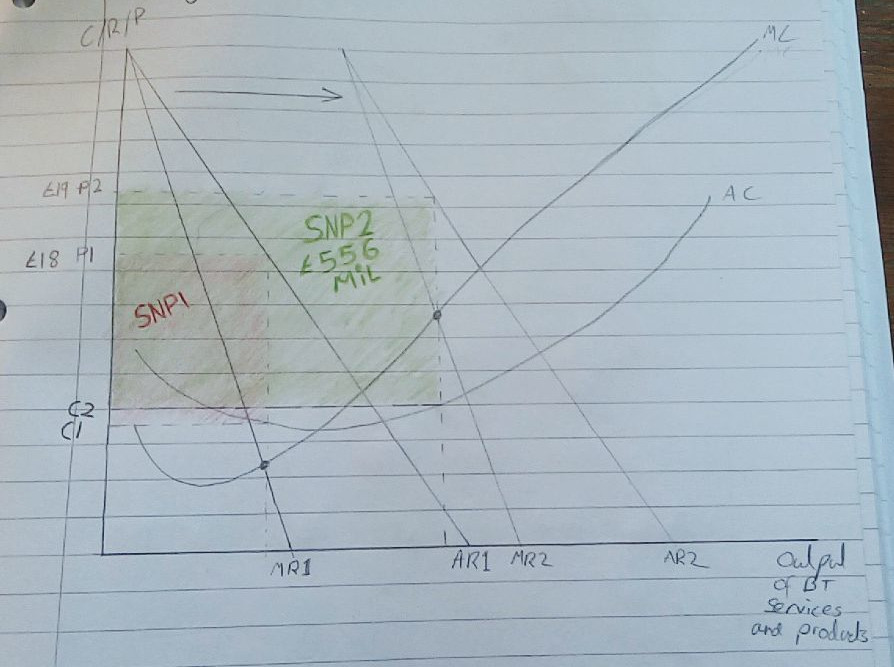 C/R/P
MC
£19 P2
AC
SNP2
£556
MiL
£18 P1
SNP1
C2
C1
MR1
AR1
MR2
AR2
Output
of BT
Services
and products